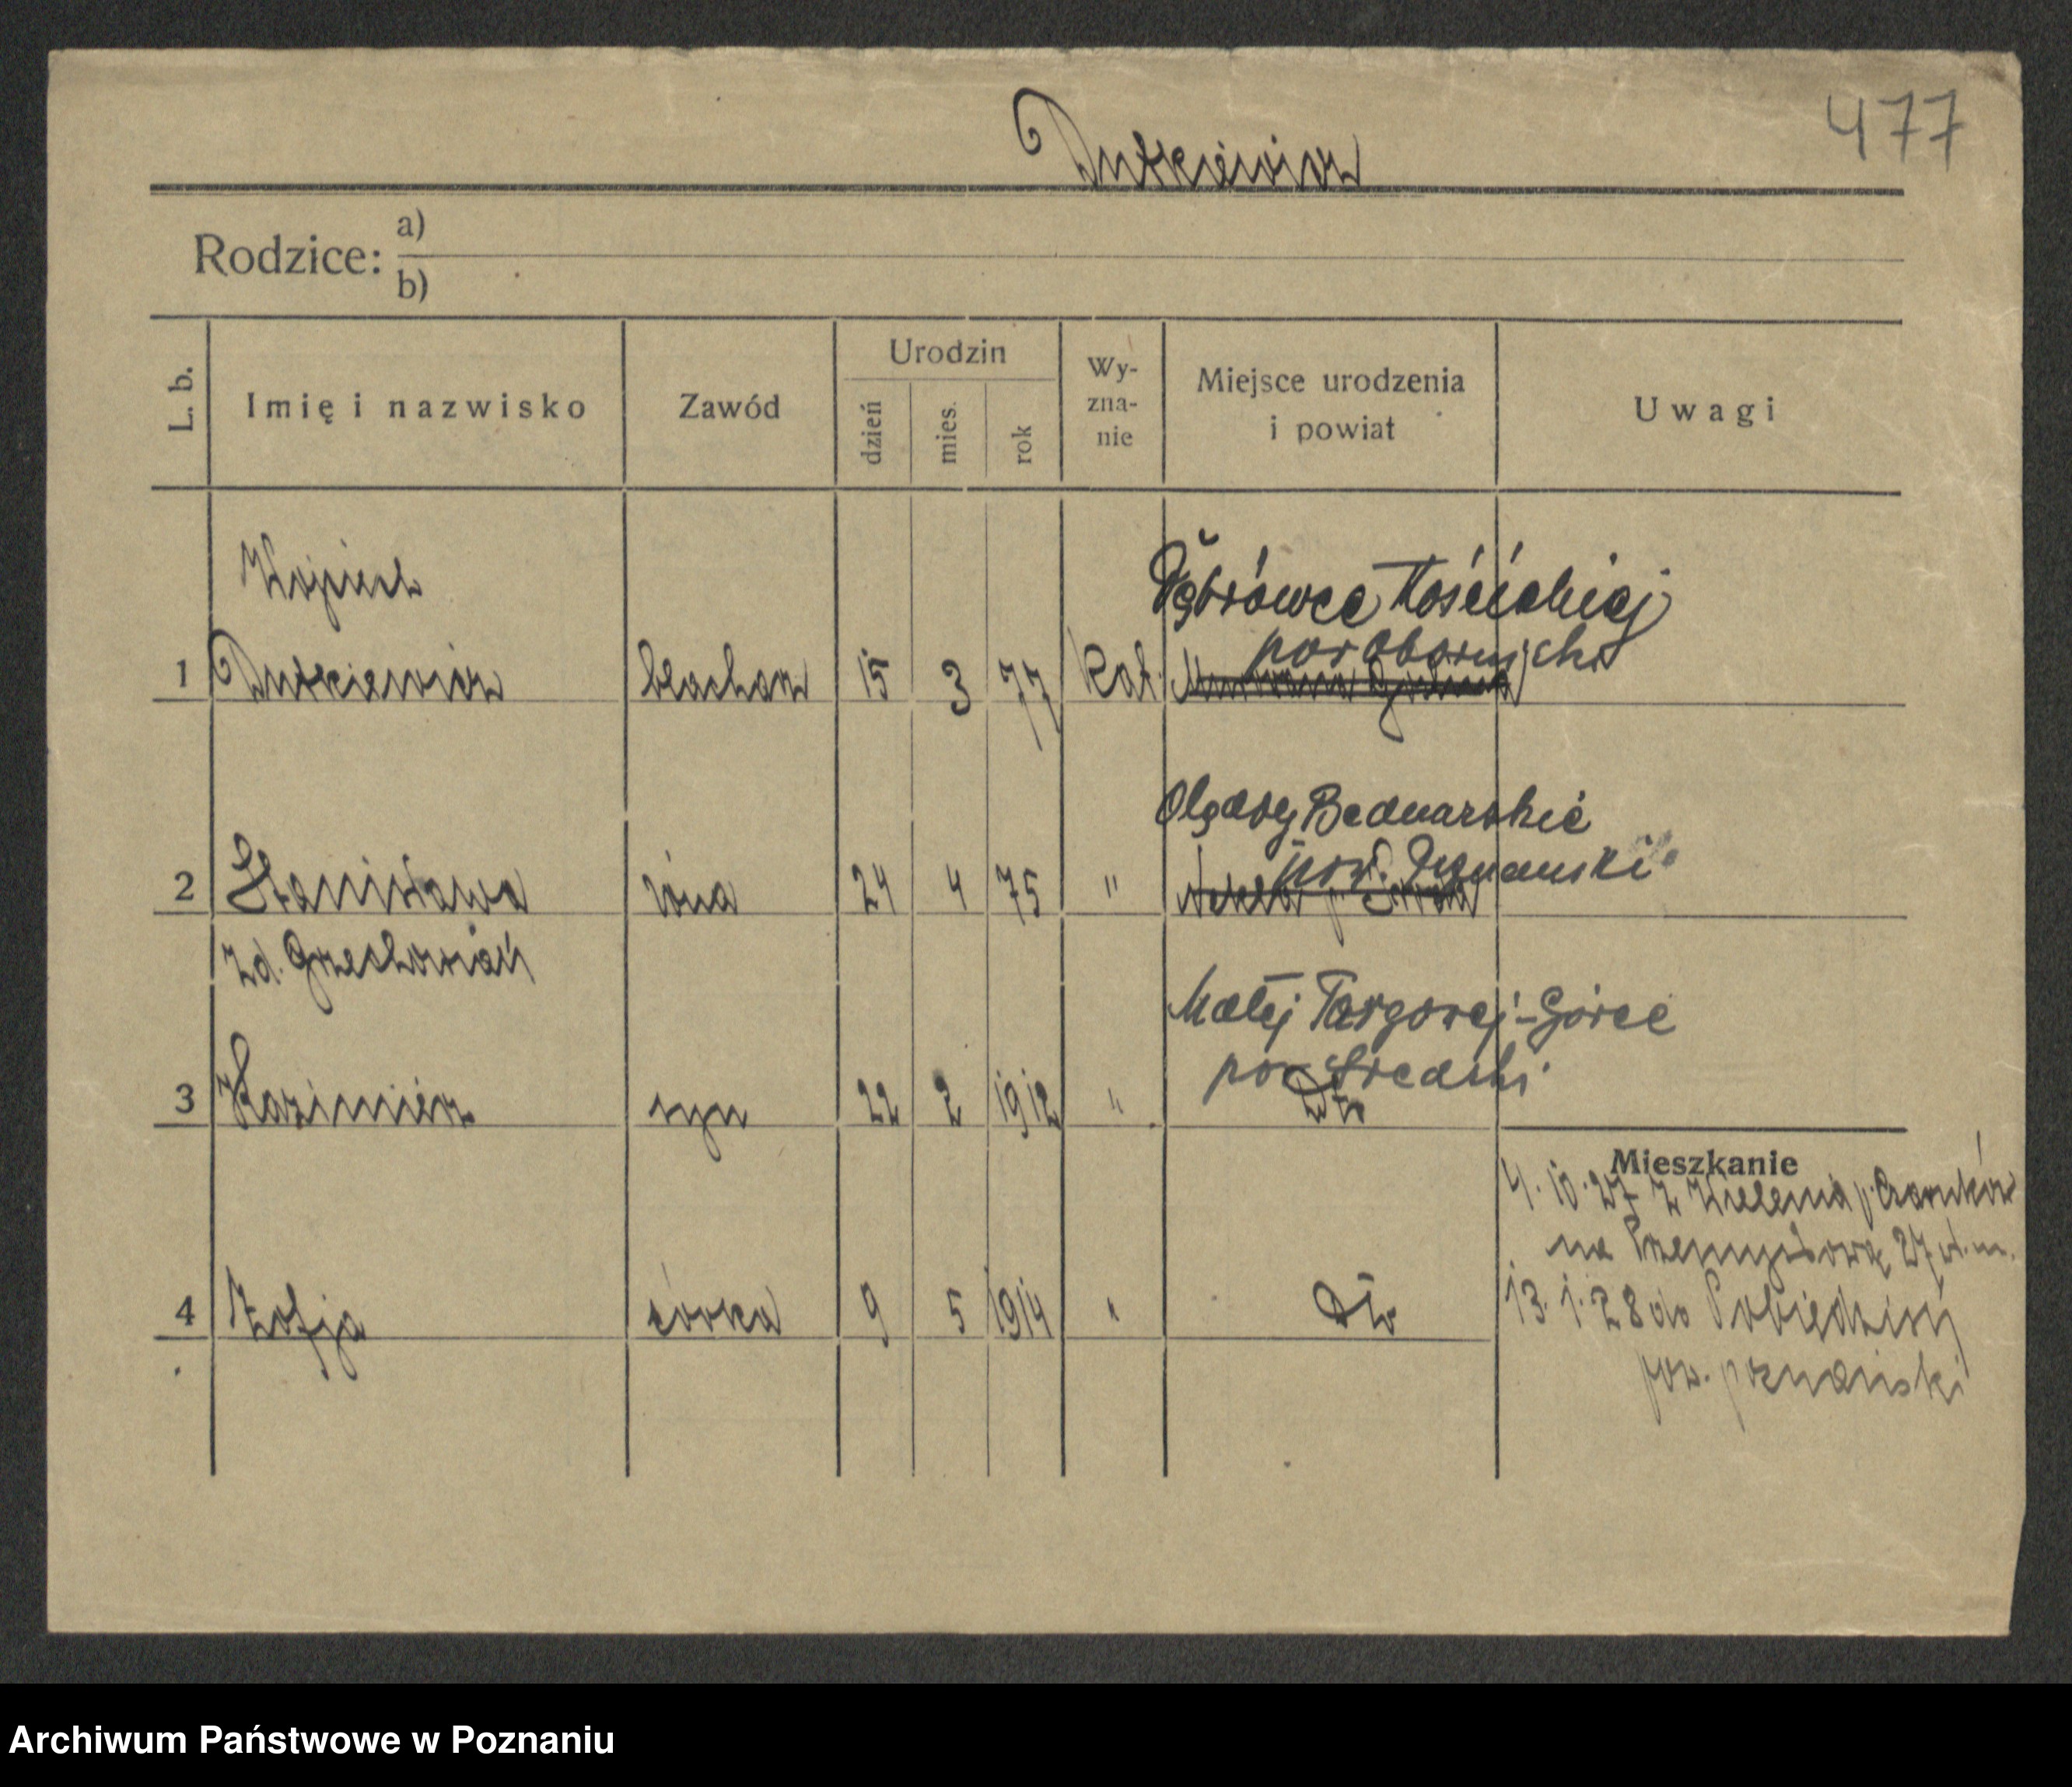 477
Dutkiewicz
Rodzice: a)
b)
L. b.
Imię i nazwisko
Zawód
Urodzin
dzień
mies.
rok
Wy-
zna-
nie
Miejsce urodzenia
i powiat
Uwagi
Wojciech
1 Dutkiewicz blacharz 15 3 77 kat.
Kościelnej
pow obornicki
2 Stanisława żona 24 4 75 "
Olędry Bednarskie
pow. Poznański
zd. Grzechowiań
3 Kazimierz syn 22 2 1912 "
Małej Targowej-Górce
pow Średzki
Dto
Mieszkanie
4. 10. 27 z Wielenia p. Czarnków
na Przemysłową 27 u. m.
13. 1. 28 do Pobiedzisk
pow. poznański
4 Zofja córka 9 5 1914 "
Dto
Archiwum Państwowe w Poznaniu